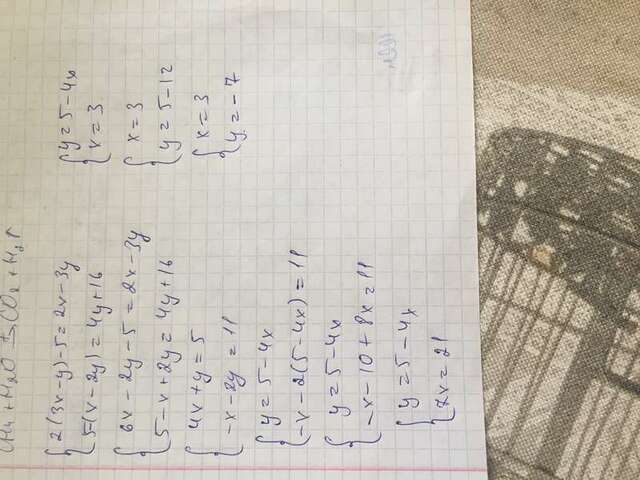 CH4 + H2O → CO2 + H2↑
2(3x-y)-5=2x-3y
5-(x-2y)=4y+16
6x-2y-5=2x-3y
5-x+2y=4y+16
4x+y=5
-x-2y=11
y=5-4x
-x-2(5-4x)=11
y=5-4x
-x-10+8x=11
y=5-4x
7x=21
y=5-4x
x=3
x=3
y=5-12
x=3
y=-7